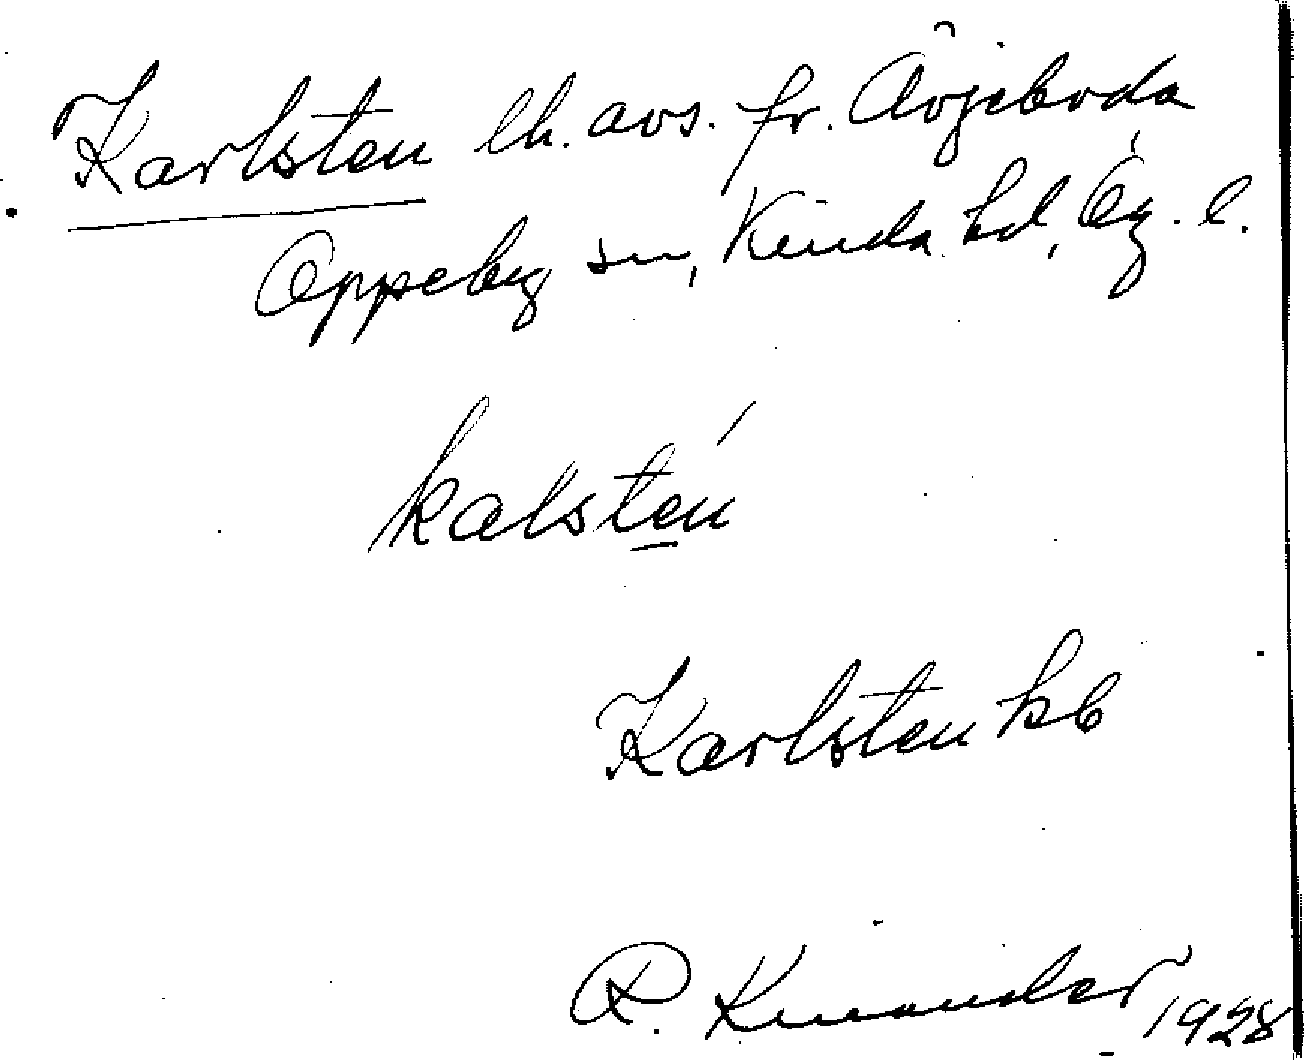 Karlsten lh. avs. fr. Åvjeboda
Oppeby sn, Kinda hd, Ög. l.
kalstén
Karlsten kb
R. Kinander 1928